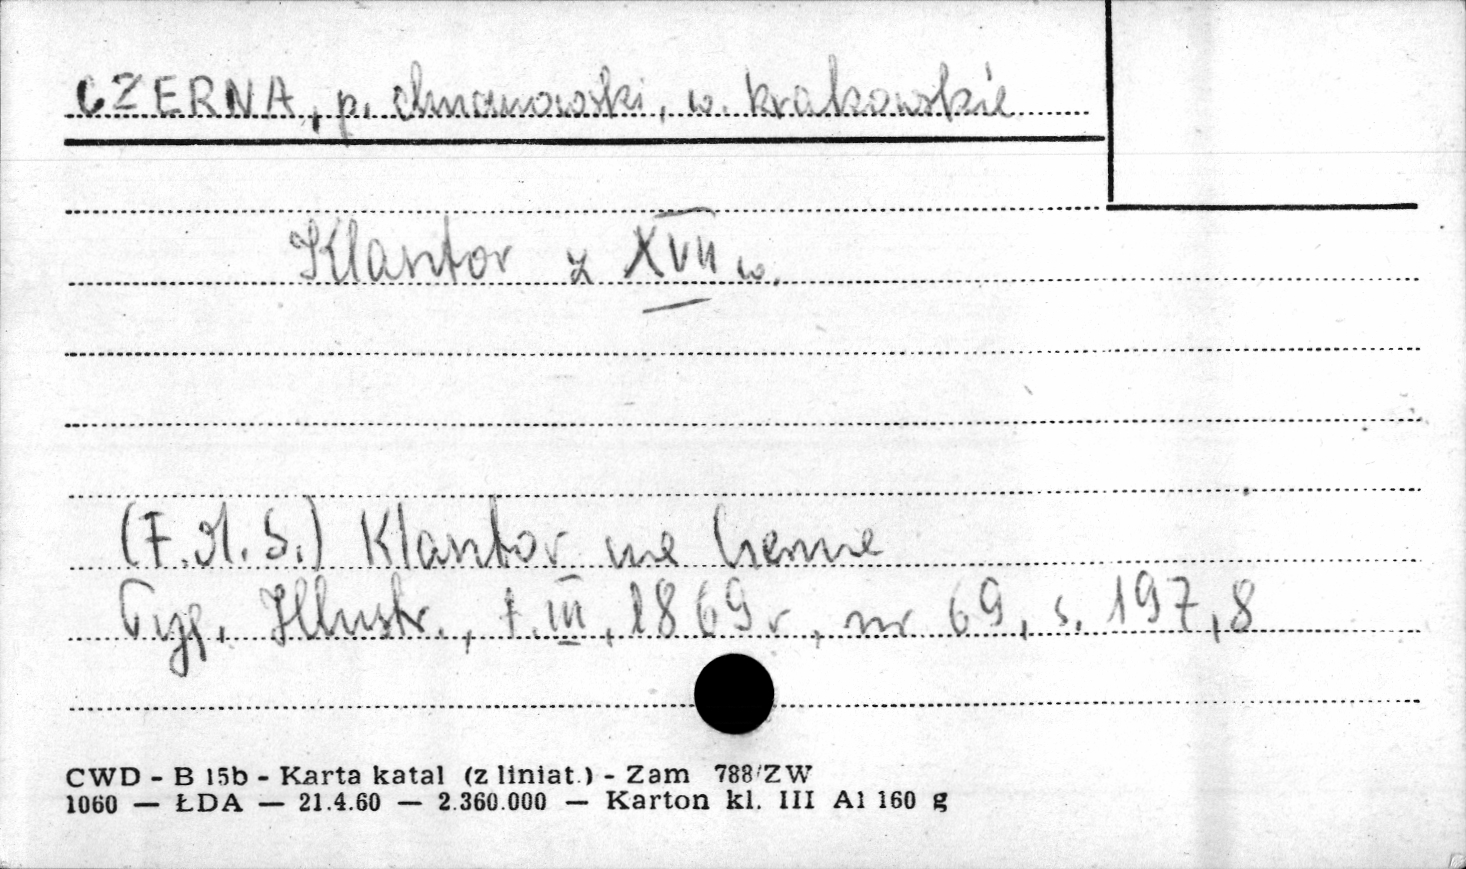 CZERNA, p. chrzanowski, w. krakowskie
Klasztor z XVII w.
(F.M.S.) Klasztor na Czernie
Tyg. Illustr., t. III, 1869 r, nr 69, s. 197,8
CWD - B 15b - Karta katal (z liniat.) - Zam 788/ZW
1060 — ŁDA — 21.4.60 — 2.360.000 — Karton kl. III A1 160 g